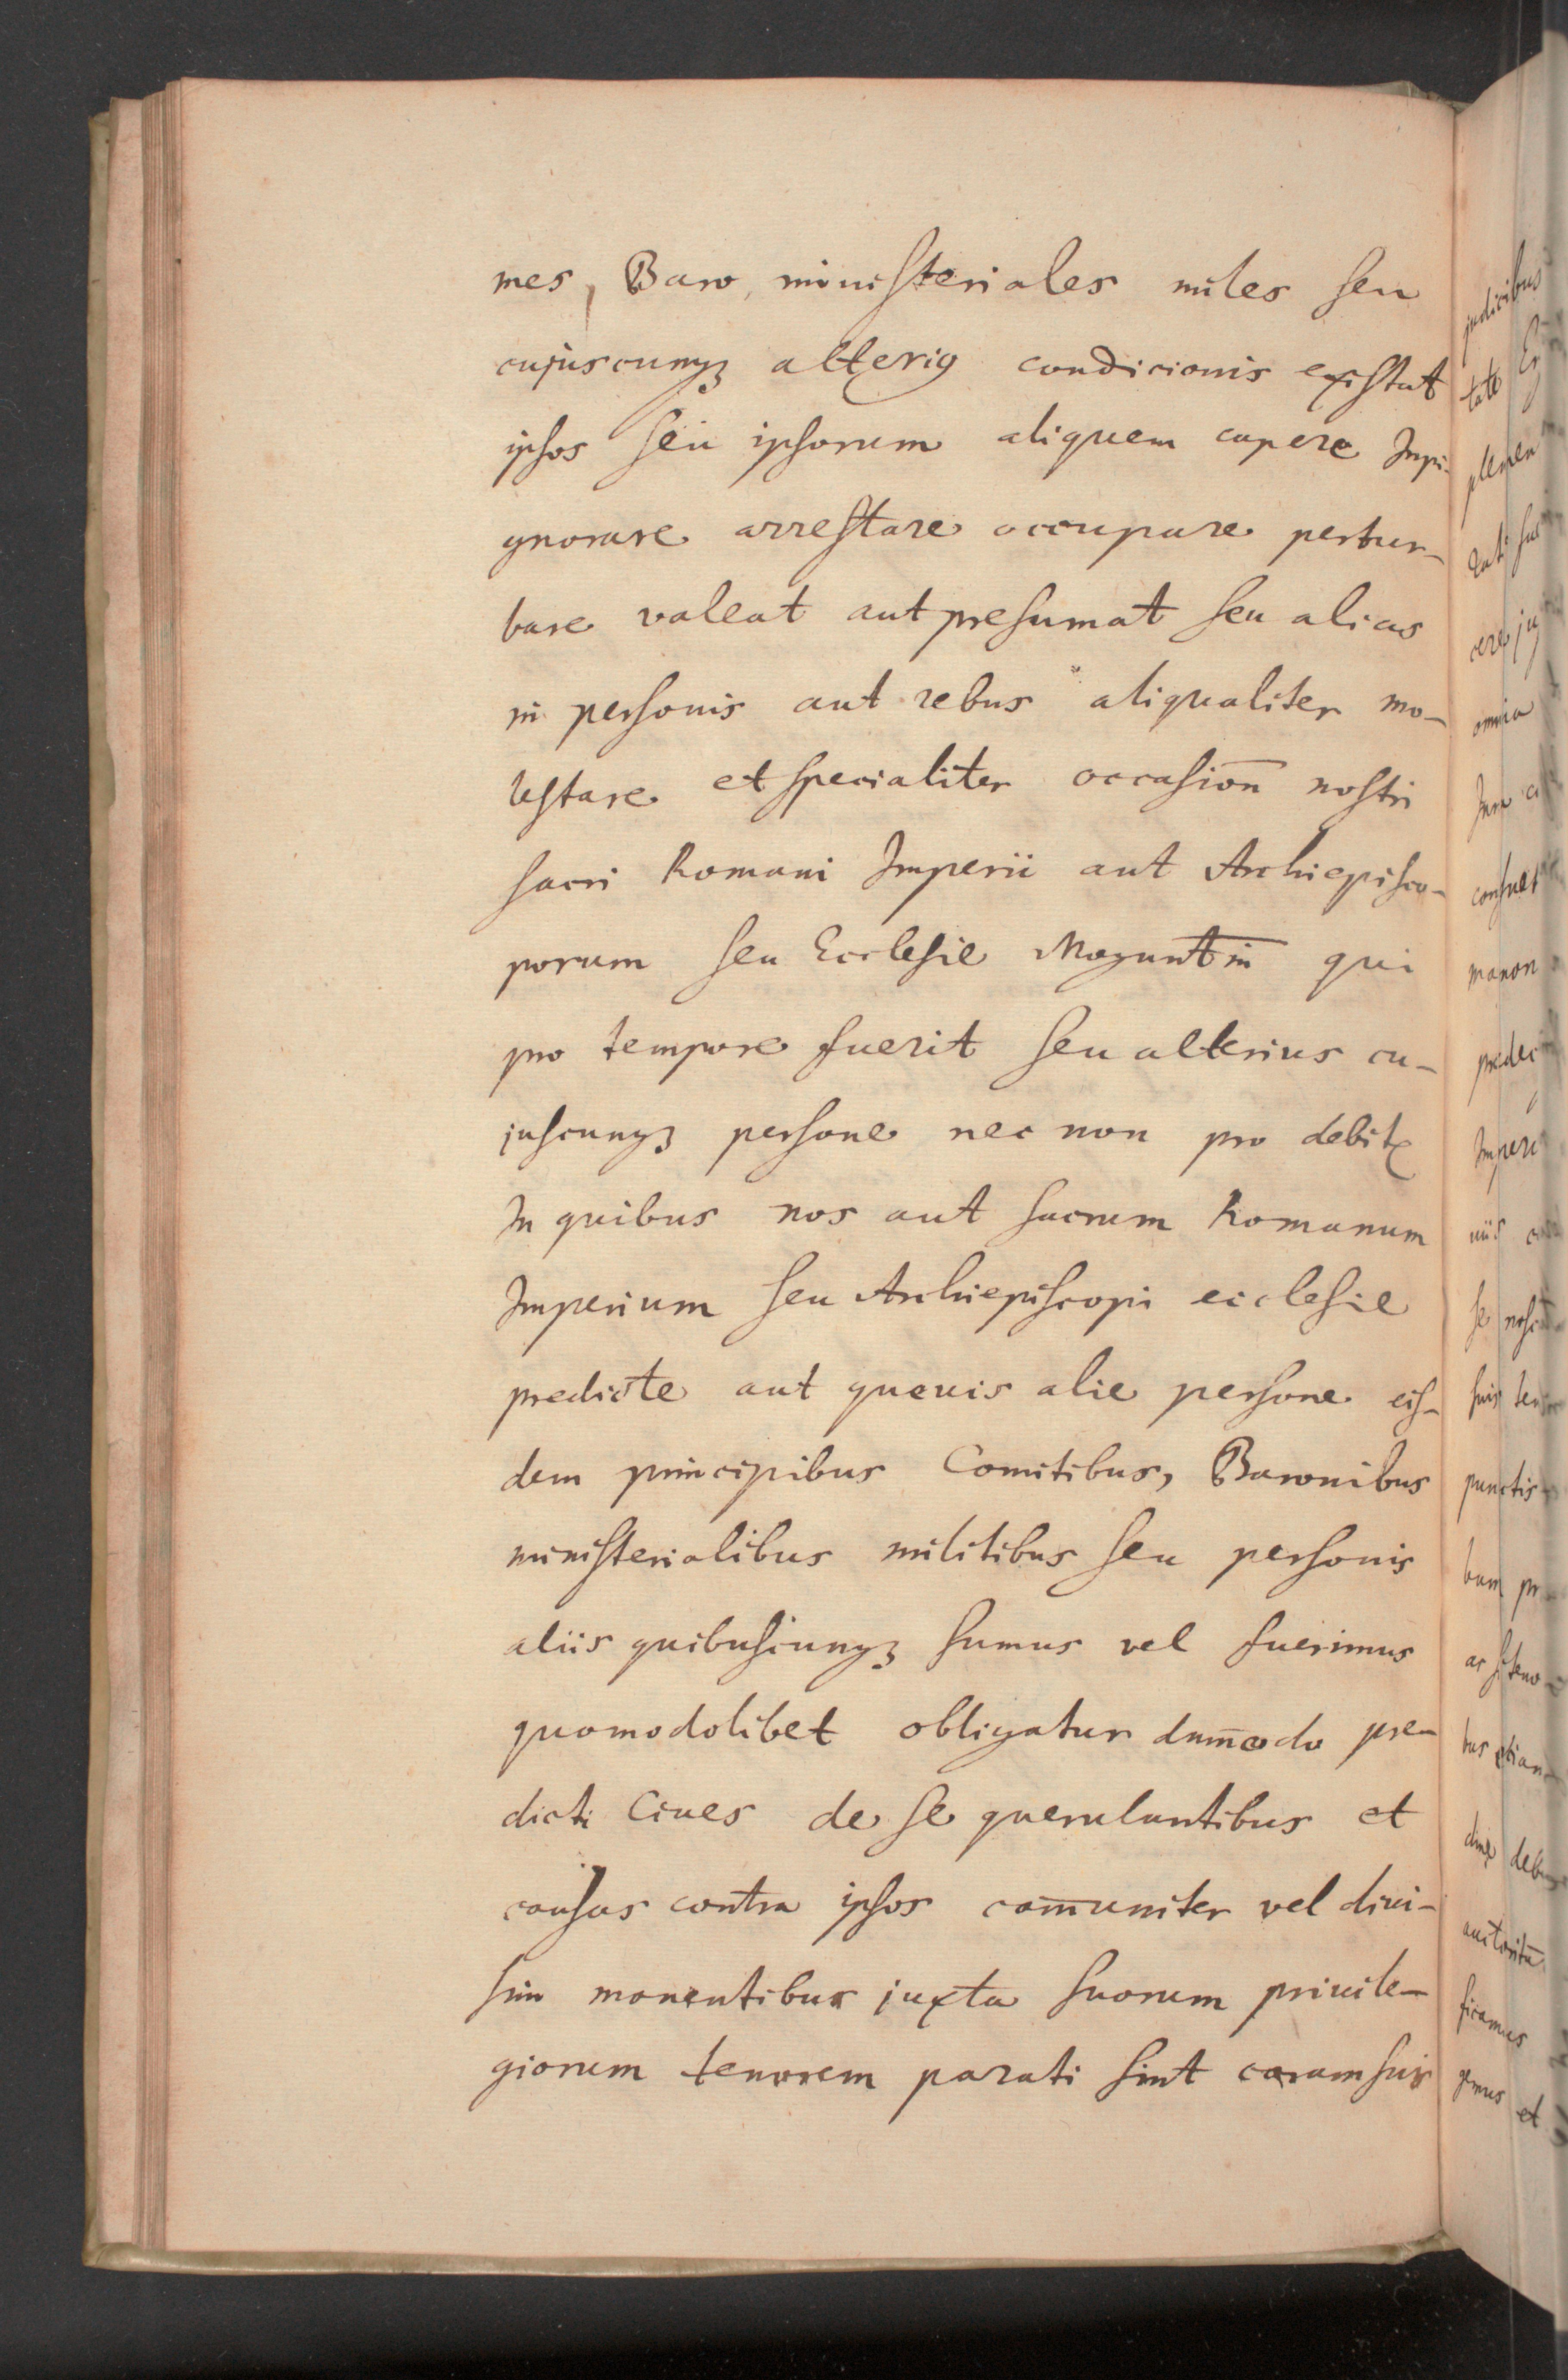 mes, Baro, ministeriales miles seu
cujuscunqꝫ alteriꝯ condicionis existat
ipsos seu ipsorum aliquem capere Impi-
gnorare arrestare occupare pertur-
bare valeat aut presumat seu alias
in personis aut rebus aliqualiter mo-
lestare et specialiter occasion̄ nostri
sacri Romani Imperii aut Archiepisco-
porum seu Ecclesie Moguntin̄ qui
pro tempore fuerit seu alterius cu-
juscunqꝫ persone nec non pro debitꝭ
In quibus nos aut sacrum Romanum
Imperium seu Archiepiscopi ecclesie
predicte aut quevis alie persone eis-
dem principibus Comitibus, Baronibus
ministerialibus militibus seu personis
aliis quibuscunqꝫ sumus vel fuerimus
quomodolibet obligatur dum̄odo pre-
dicti Ciues de se querulantibus et
causas contra ipsos com̄uniter vel diui-
sim monentibus juxta suorum priuile-
giorum tenorem parati sint coram suis
judicibus
tate
plenen
omnia
consuet
manon
predec
Imperi
se nosc
suis ten
punctis
bus etian
dinꝭ deb
ficamus
gemus et